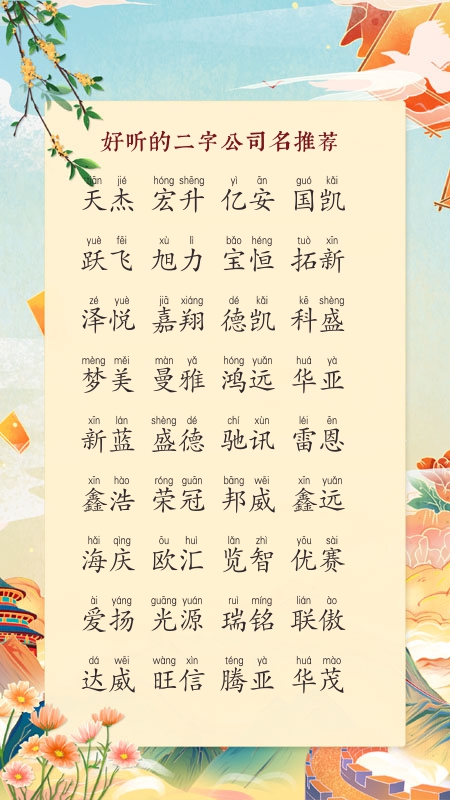 好听的二字公司名推荐
tiān jié hóng shēng yì ān guó kǎi
天杰 宏升 亿安 国凯
yuè fēi xù lì bǎo héng tuò xīn
跃飞 旭力 宝恒 拓新
zé yuè jiā xiáng dé kǎi kē shèng
泽悦 嘉翔 德凯 科盛
mèng měi màn yǎ hóng yuǎn huá yà
梦美 曼雅 鸿远 华亚
xīn lán shèng dé chí xùn léi ēn
新蓝 盛德 驰讯 雷恩
xīn hào róng guān bāng wēi xīn yuǎn
鑫浩 荣冠 邦威 鑫远
hǎi qìng ōu huì lǎn zhì yōu sài
海庆 欧汇 览智 优赛
ài yáng guāng yuán ruì míng lián ào
爱扬 光源 瑞铭 联傲
dá wēi wàng xìn téng yà huá mào
达威 旺信 腾亚 华茂